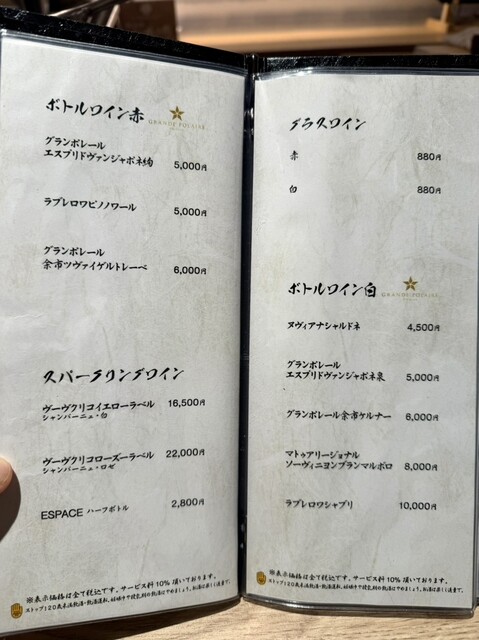 ボトルワイン赤
GRANDE POLAIRE
グランポレール
エスプリドヴァンジャポネ絢 5,000円
ラブレロワピノノワール 5,000円
グランポレール
余市ツヴァイゲルトレーベ 6,000円
スパークリングワイン
ヴーヴクリコイエローラベル 16,500円
シャンパーニュ・白
ヴーヴクリコローズーラベル 22,000円
シャンパーニュ・ロゼ
ESPACE ハーフボトル 2,800円
※表示価格は全て税込です。サービス料10%頂いております。
グラスワイン
赤 880円
白 880円
ボトルワイン白
GRANDE POLAIRE
ヌヴィアナシャルドネ 4,500円
グランポレール
エスプリドヴァンジャポネ泉 5,000円
グランポレール余市ケルナー 6,000円
マトゥアリージョナル
ソーヴィニヨンブランマルボロ 8,000円
ラブレロワシャブリ 10,000円
※表示価格は全て税込です。サービス料10%頂いております。